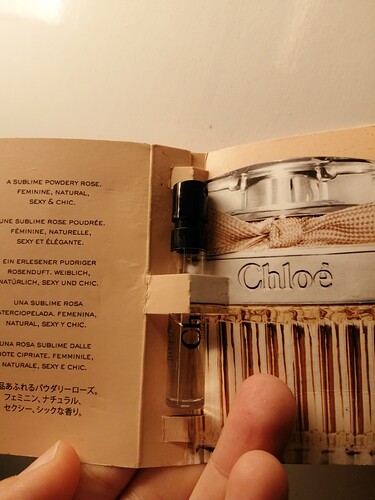 A SUBLIME POWDERY ROSE.
FEMININE, NATURAL,
SEXY & CHIC.
UNE SUBLIME ROSE POUDRÉE.
FÉMININE, NATURELLE,
SEXY ET ÉLÉGANTE.
EIN ERLESENER PUDRIGER
ROSENDUFT. WEIBLICH,
NATÜRLICH, SEXY UND CHIC.
UNA SUBLIME ROSA
ATERCIOPELADA. FEMENINA,
NATURAL, SEXY Y CHIC.
UNA ROSA SUBLIME DALLE
NOTE CIPRIATE. FEMMINILE,
NATURALE, SEXY E CHIC.
品あふれるパウダリーローズ。
フェミニン、ナチュラル、
セクシー、シックな香り。
Chloé
Ch